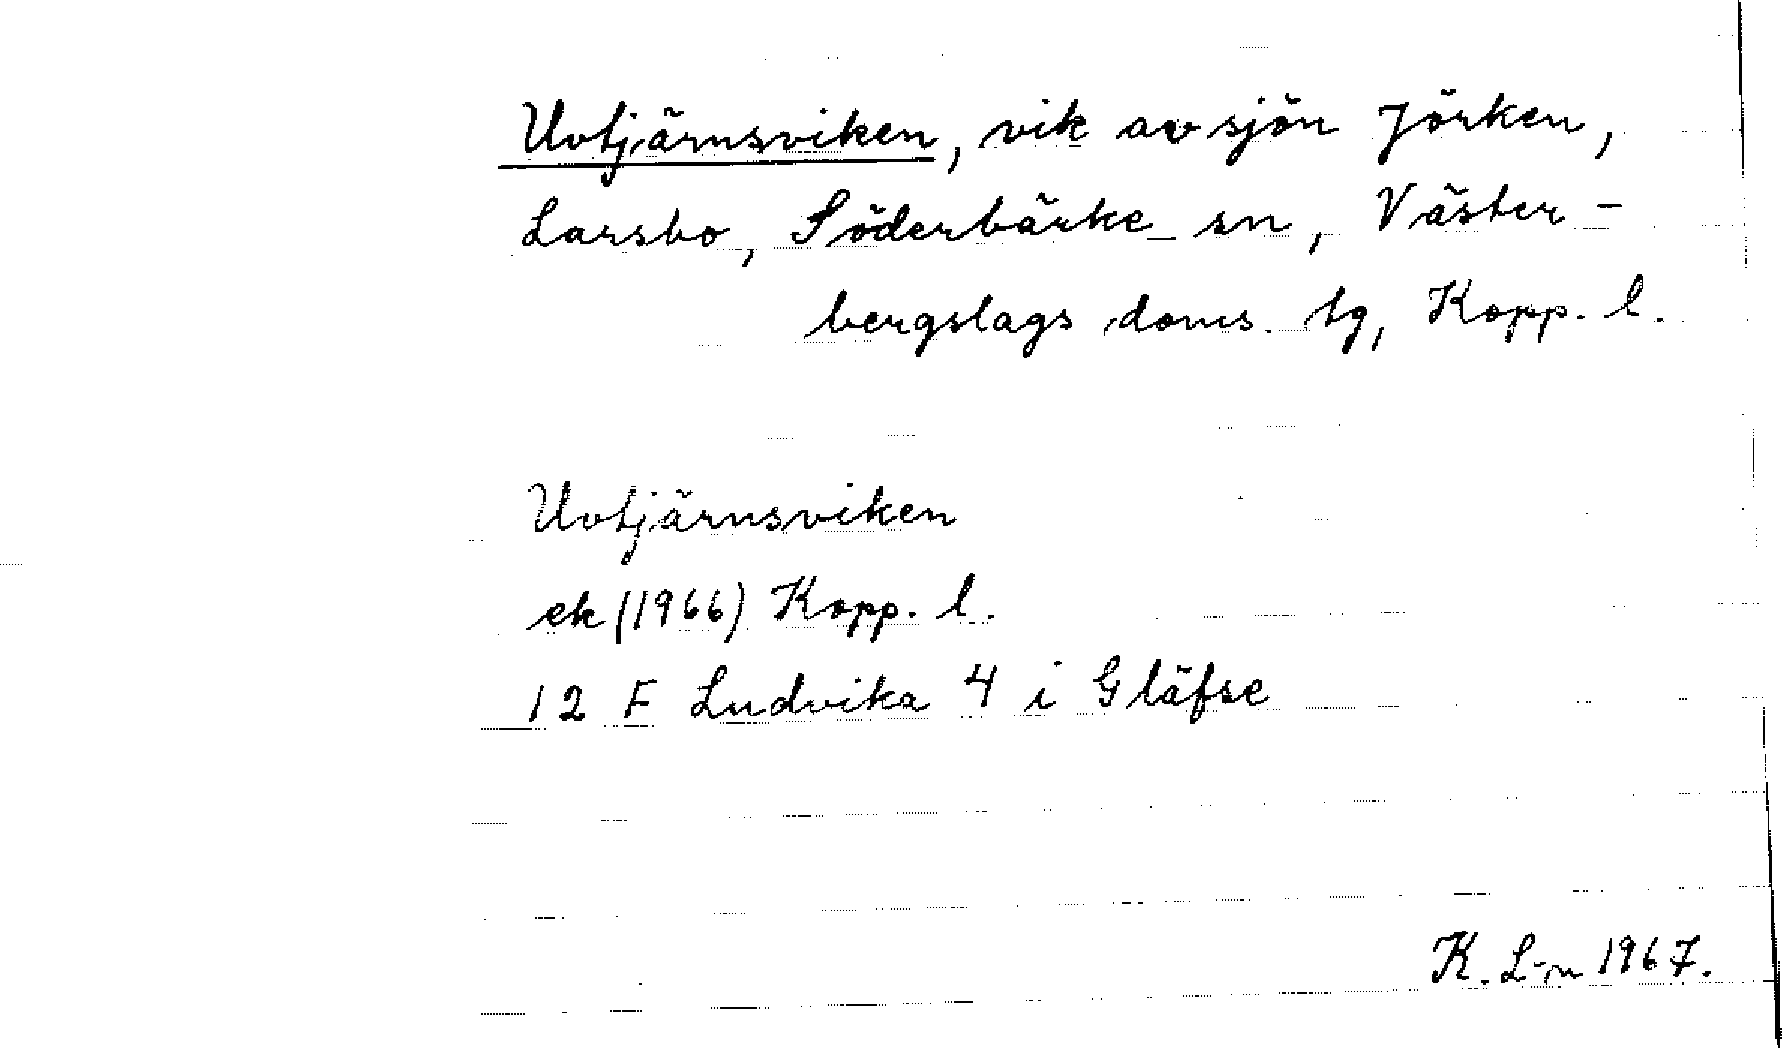 Uvtjärnsviken, vik av sjön Jörken,
Larsbo, Söderbärke sn, Väster-
bergslags doms. tg, Kopp. l.
Uvtjärnsviken
ek (1966) Kopp. l.
12 F Ludvika 4 i Gläfse
K. L-n 1967.